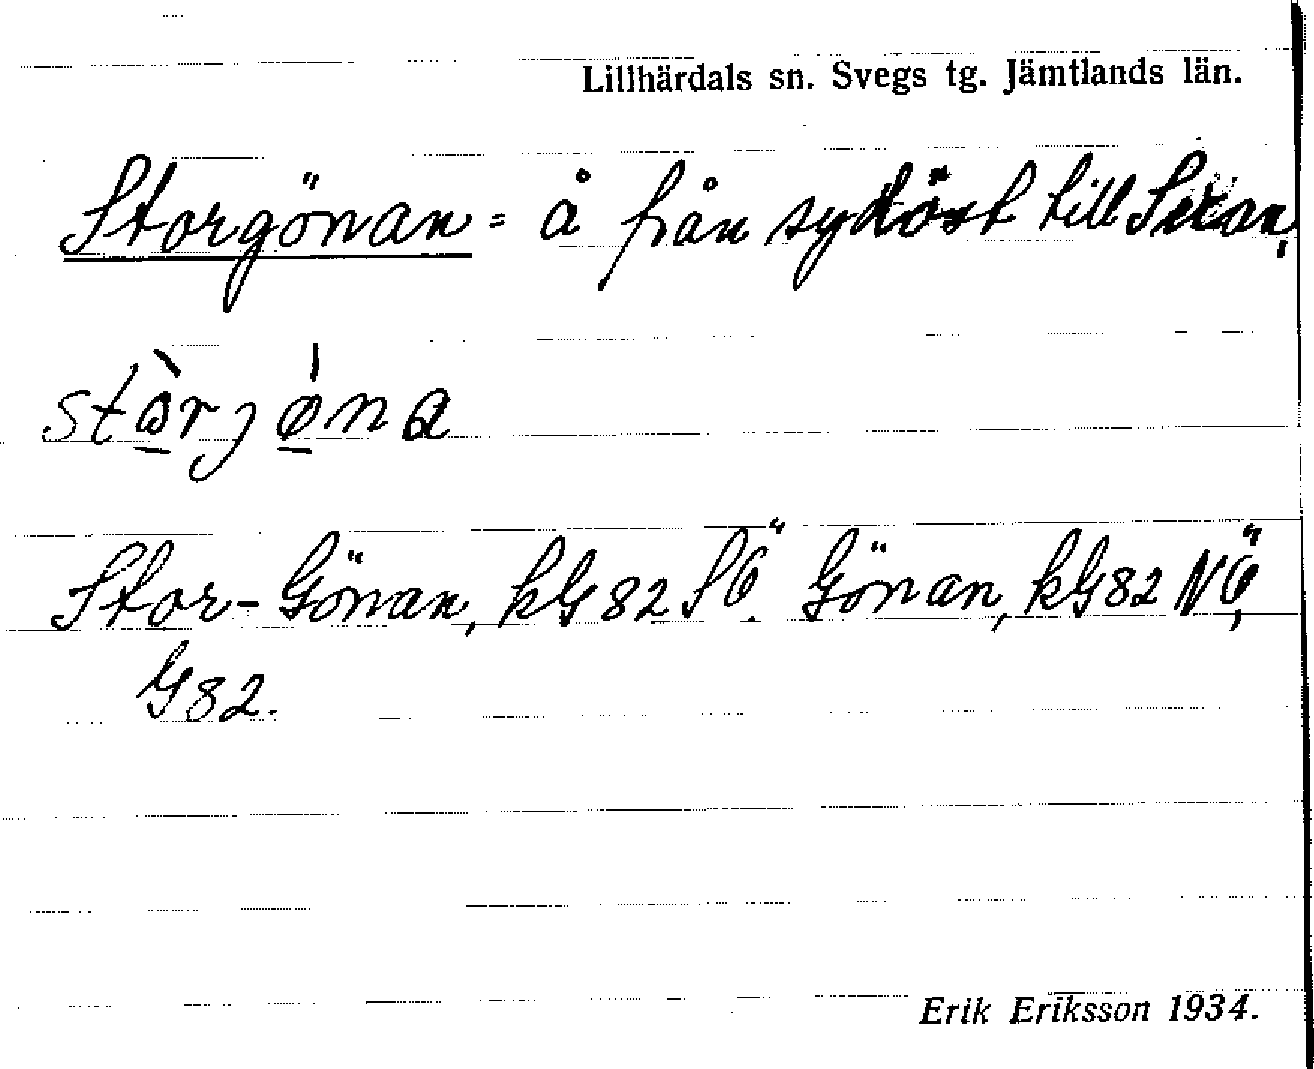 Lillhärdals sn. Svegs tg. Jämtlands län.
Storgönan = å från sydöst till
stòrjǿna
Stor-Gönan, kG82 SÖ. Gönan, kG82 NÖ,
G82.
Erik Eriksson 1934.